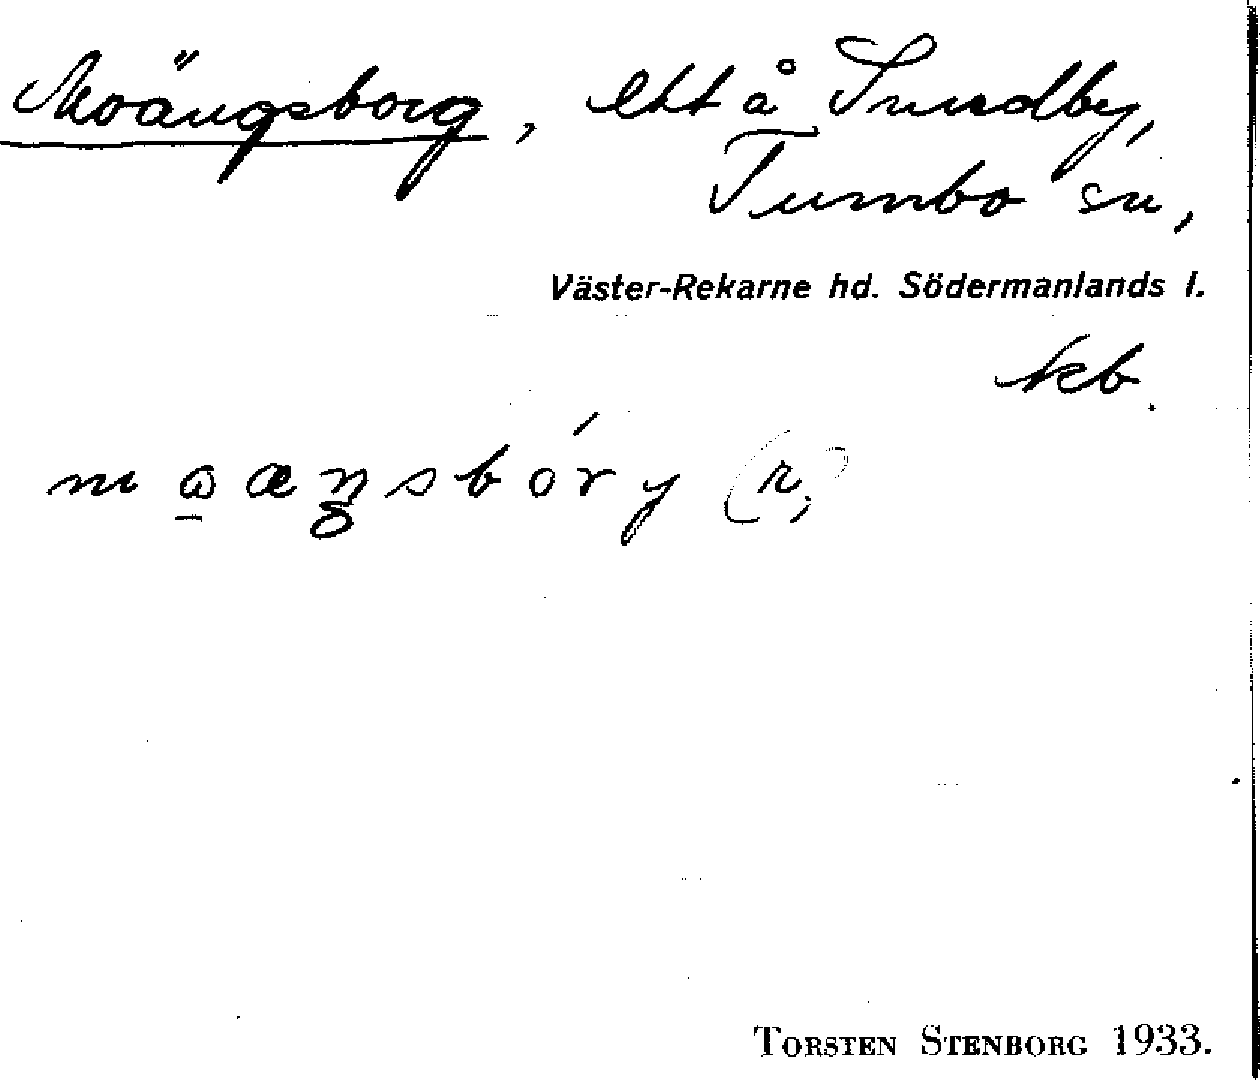 Moängsborg, ett å Sundby,
Tumbo sn,
Väster-Rekarne hd. Södermanlands l.
kb.
TORSTEN STENBORG 1933.